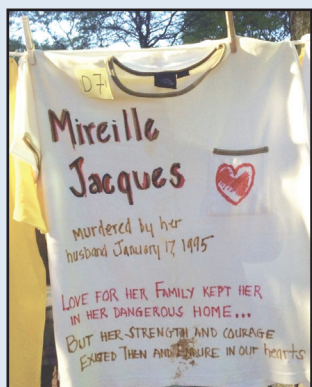 D7
Mireille
Jacques
Murdered by her
husband January 17, 1995
LOVE FOR HER FAMILY KEPT HER
IN HER DANGEROUS HOME...
BUT HER STRENGTH AND COURAGE
EXISTED THEN AND ENDURE IN OUR hearts